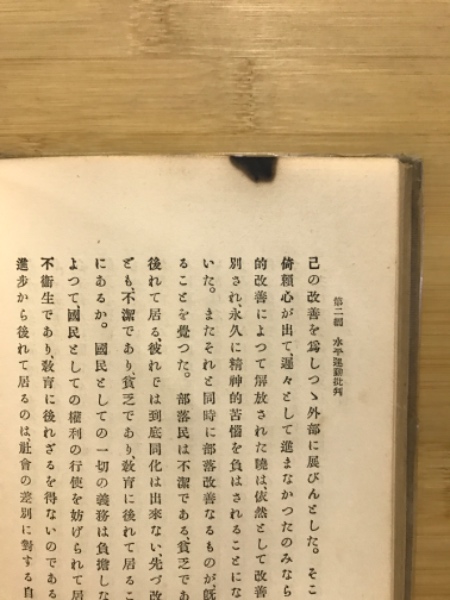 第二編 水平運動批判
己の改善を爲しつゝ外部に展びんとした。そこ
倚頼心が出て、遲々として進まなかつたのみなら
的改善によつて解放された曉は、依然として改善
別され、永久に精神的苦惱を負はされることにな
いた。またそれと同時に部落改善なるものが、既
ることを覺つた。部落民は不潔である、貧乏であ
後れて居る、彼れでは到底同化は出來ない、先づ改
ども、不潔であり、貧乏であり、敎育に後れて居るこ
にあるか。國民としての一切の義務は負擔しな
よつて、國民としての權利の行使を妨げられて居
不衞生であり、敎育に後れざるを得ないのである
進步から後れて居るのは、社會の差別に對する自